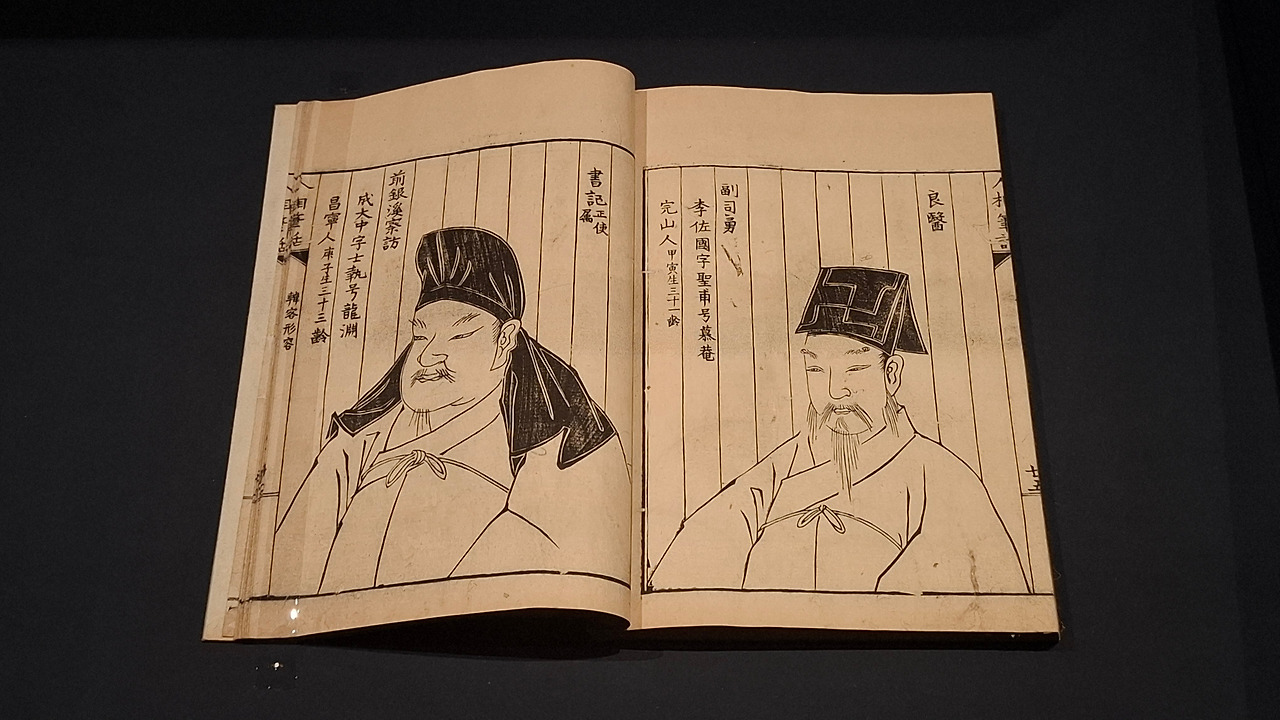 良醫
副司勇
李佐國字聖甫号慕菴
完山人甲寅生三十一齢
書記正使属
前銀溪察訪
成大中字士執号龍淵
昌寧人庚子生三十三齢
韓客形容